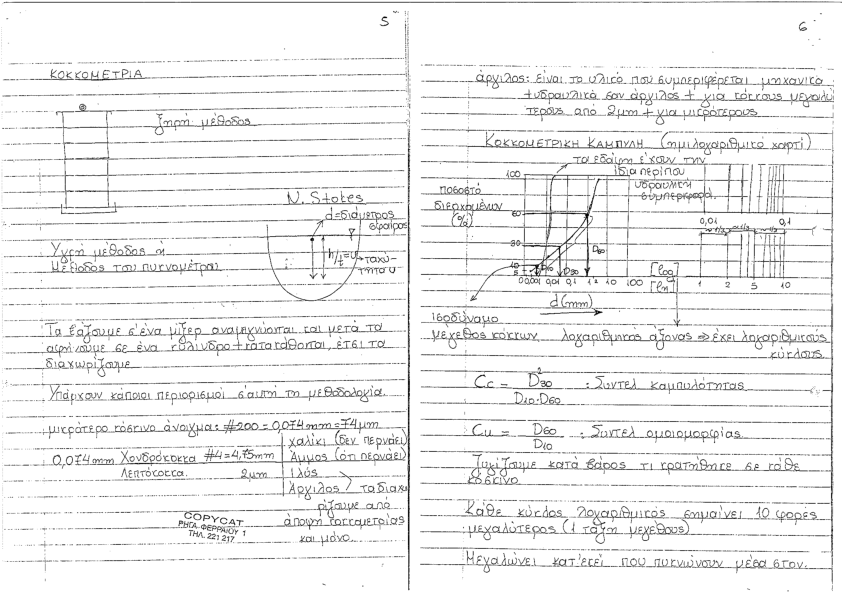 5
ΚΟΚΚΟΜΕΤΡΙΑ
ξηρή μέθοδος
N. Stokes
d=διάμετρος
σφαίρας
h/t=υ→ταχύ-
τητα υ
Υγρή μέθοδος ή
Μέθοδος του πυκνομέτρου
Τα βάζουμε σ'ένα μίξερ αναμιγνύονται και μετά τα
αφήνουμε σε ένα κύλινδρο+κατακάθονται, έτσι τα
διαχωρίζουμε
Υπάρχουν κάποιοι περιορισμοί σ'αυτή τη μεθοδολογία.
μικρότερο κόσκινο άνοιγμα: #200=0,074mm=74μm
0,074mm Χονδρόκοκκα #4=4,75mm
Λεπτόκοκκα. 2μm
χαλίκι (δεν περνάει)
Άμμος (ότι περνάει)
Ιλύς
Άργιλος } τα διαχω
ρίζουμε από
άποψη κοκκομετρίας
και μόνο.
COPYCAT
ΡΗΓΑ ΦΕΡΡΑΙΟΥ 1
ΤΗΛ. 221 217
6
άργιλος: είναι το υλικό που συμπεριφέρεται μηχανικά
+υδραυλικά σαν άργιλος + για κόκκους μεγαλύ
τερους από 2μm + για μικρότερους
ΚΟΚΚΟΜΕΤΡΙΚΗ ΚΑΜΠΥΛΗ (ημιλογαριθμικό χαρτί)
τα εδάφη έχουν την
ίδια περίπου
υδραυλική
συμπεριφορά.
ποσοστό
διερχομένων
(%)
100
60
30
10
5
D10 D30 D60
0,001 0,01 0,1 1 2 10 100
d(mm)
0,01 0,1
1 2 5 10
[log
[ln
ισοδύναμο
μέγεθος κόκκων λογαριθμικός άξονας ⇒ έχει λογαριθμικούς
κύκλους
Cc = D²30 / D10·D60 : Συντελ καμπυλότητας
Cu = D60 / D10 : Συντελ ομοιομορφίας
Ζυγίζουμε κατά βάρος τι κρατήθηκε σε κάθε
κόσκινο
Κάθε κύκλος λογαριθμικός σημαίνει 10 φορές
μεγαλύτερος (1 τάξη μεγέθους)
Μεγαλώνει κατ'εκεί που πυκνώνουν μέσα στον.